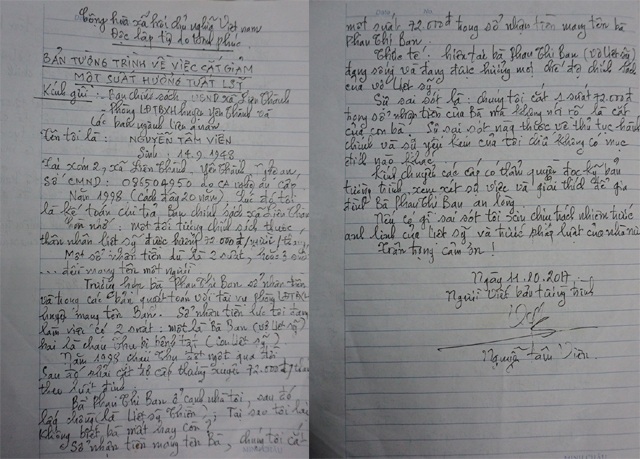 Cộng hòa xã hội chủ nghĩa Việt Nam
Độc lập tự do hạnh phúc.
BẢN TƯỜNG TRÌNH VỀ VIỆC CẮT GIẢM
MỘT SUẤT HƯỞNG TUẤT LST
Kính gửi: Ban chính sách, UBND xã Diên Thành
Phòng LĐTBXH huyện Yên Thành và
Các ban ngành liên quan
Tên tôi là: NGUYỄN TÂM VIÊN
Sinh: 14.9.1948
Tại xóm 2, xã Thành, Yên Thành Nghệ An,
Số CMND: 086504950 do CA nghệ an cấp
Năm 1998 (Cách đây 20 năm) lúc đó tôi
là kế toán chi trả Ban chính sách xã
Còn nhớ: một đối tượng chính sách thuộc
thân nhân liệt sỹ được hưởng 72.000đ/người/tháng,
Một sổ nhận tiền dù là 2 suất, hoặc 3 suất
... đều mang tên một người
Trường hợp bà Phan Thị Ban sổ nhận tiền
và trong các bản quyết toán với tài vụ phòng LĐTBXH
huyện mang tên Ban. Sổ nhận tiền lúc tôi đang
làm việc có 2 suất: một là Bà Ban (vợ liệt sỹ)
hai là cháu Thu bị bệnh tật (con liệt sỹ)
Năm 1998 cháu Thu qua đời
Sau đó phải cắt trợ cấp tháng 72.000đ/tháng
theo luật định.
Bà Phan Thị Ban ở cạnh nhà tôi, sau đó
chồng là Liệt sỹ Thiên); Tại sao tôi lại
không biết bà mất hay còn?
Sổ nhận tiền mang tên Bà, chúng tôi cắt
một suất 72.000đ trong sổ nhận tiền mang tên bà
Phan Thị Ban.
Thực tế: hiện tại bà Phan Thị Ban (vợ liệt sỹ)
đang sống và đang được hưởng mọi chế độ chính sách
của vợ liệt sỹ
Sự sai sót là: chúng tôi cắt 1 suất 72.000đ
trong sổ nhận tiền của Bà mà không nói rõ là cắt
của con bà. Sự sai sót này thuộc về thủ tục hành
chính và sự yếu kém của tôi chứ không có mục
đích nào khác.
Kính chuyển các cấp có thẩm quyền đọc kỹ bản
tường trình, xem xét sự việc và giải thích để gia
đình Bà Phan Thị Ban an lòng.
Nếu có gì sai sót tôi xin chịu trách nhiệm trước
anh linh của liệt sỹ và trước pháp luật của nhà nước
Trân trọng cảm ơn!
Ngày 11.10.2017
Người viết bản tường trình
Nguyễn Tâm Viên